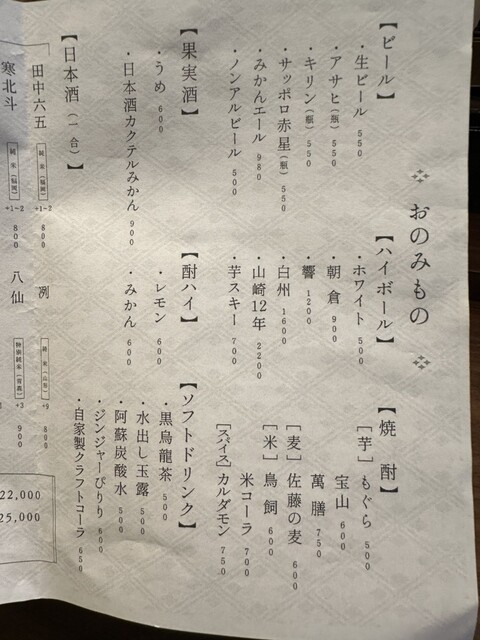 おのみもの
【ビール】
・生ビール 550
・アサヒ(瓶) 550
・キリン(瓶) 550
・サッポロ赤星(瓶) 550
・みかんエール 980
・ノンアルビール 500
【ハイボール】
・ホワイト 500
・朝倉 900
・響 1200
・白州 1600
・山崎12年 2200
・芋スキー 700
【焼酎】
[芋]もぐら 500
宝山 600
萬膳 750
[麦]佐藤の麦 600
[米]鳥飼 600
米コーラ 700
[スパイス]カルダモン 750
【果実酒】
・うめ 600
・日本酒カクテルみかん 900
【酎ハイ】
・レモン 600
・みかん 600
【ソフトドリンク】
・黒烏龍茶 500
・水出し玉露 500
・阿蘇炭酸水 500
・ジンジャーぴりり 600
・自家製クラフトコーラ 650
【日本酒(一合)】
田中六五 純米(福岡) +1-2 800
寒北斗 純米(福岡) +1-2 800
純米(山形) +9 800
八仙 特別純米(青森) +3 900
22,000
25,000